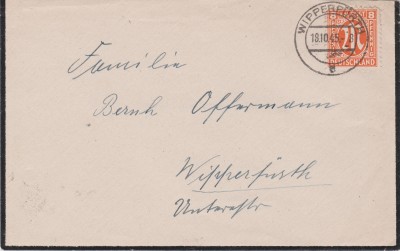 WIPPERFÜRTH
18.10.45
8
DEUTSCHLAND
Familie
Bernh Offermann
Wipperfürth
Unterestr